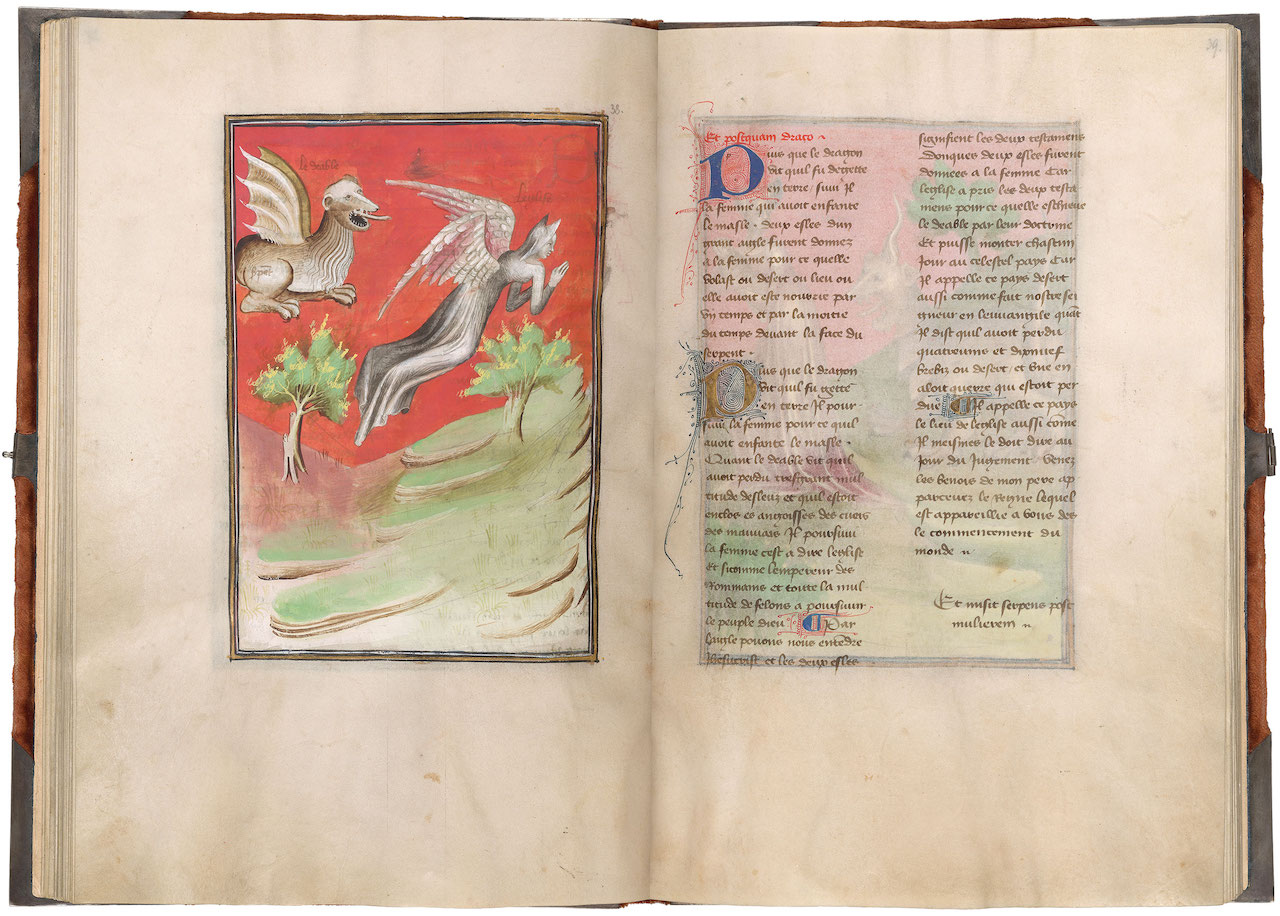 38.
le deable
leglise
39.
Et postquam draco
Puis que le dragon
vit quil fu degette
en terre / suiui Il
la femme qui auoit enfante
le masle . deux esles dun
grant aigle furent donnez
a la femme pour ce quelle
volast ou desert ou lieu ou
elle auoit este nourrie par
vn temps et par la moitie
du temps deuant la face du
serpent .
Puis que le dragon
vit quil fu gette
en terre Il pour
suiui la femme pour ce quil
auoit enfante le masle .
Quant le deable vit quil
auoit perdu tresgrant mul
titude desleuz et quil estoit
enclos es angoisses des cuers
des mauuais Il poursuiui
la femme cest a dire leglise
Et sicomme lempereur des
Rommains et toute la mul
titude de felons a poursuiuir .
le peuple dieu ¶ Par
laigle pouons nous entendre
Ihesucrist et les deux esles
signifient les deux testamens
Donques deux esles furent
donnees a la femme Car
leglise a pris les deux testa
mens pour ce quelle eschieue
le deable par leur doctrine
Et puisse monter chascun
Jour au celestel pays Car
Il appelle ce pays desert
aussi comme fait nostre sei
gneur en leuuangile quant
Il dist quil auoit perdu
quatreuins et dixnuef
brebiz ou desert et vne en
aloit querre qui estoit per
due ¶ Il appelle ce pays
le lieu de leglise aussi come
Il meismes le doit dire au
Jour du Jugement . Venez
les benois de mon pere ap
parceuez le Reyne lequel
est appareillie a vous des
le commencement du
monde
Et misit serpens post
mulierem